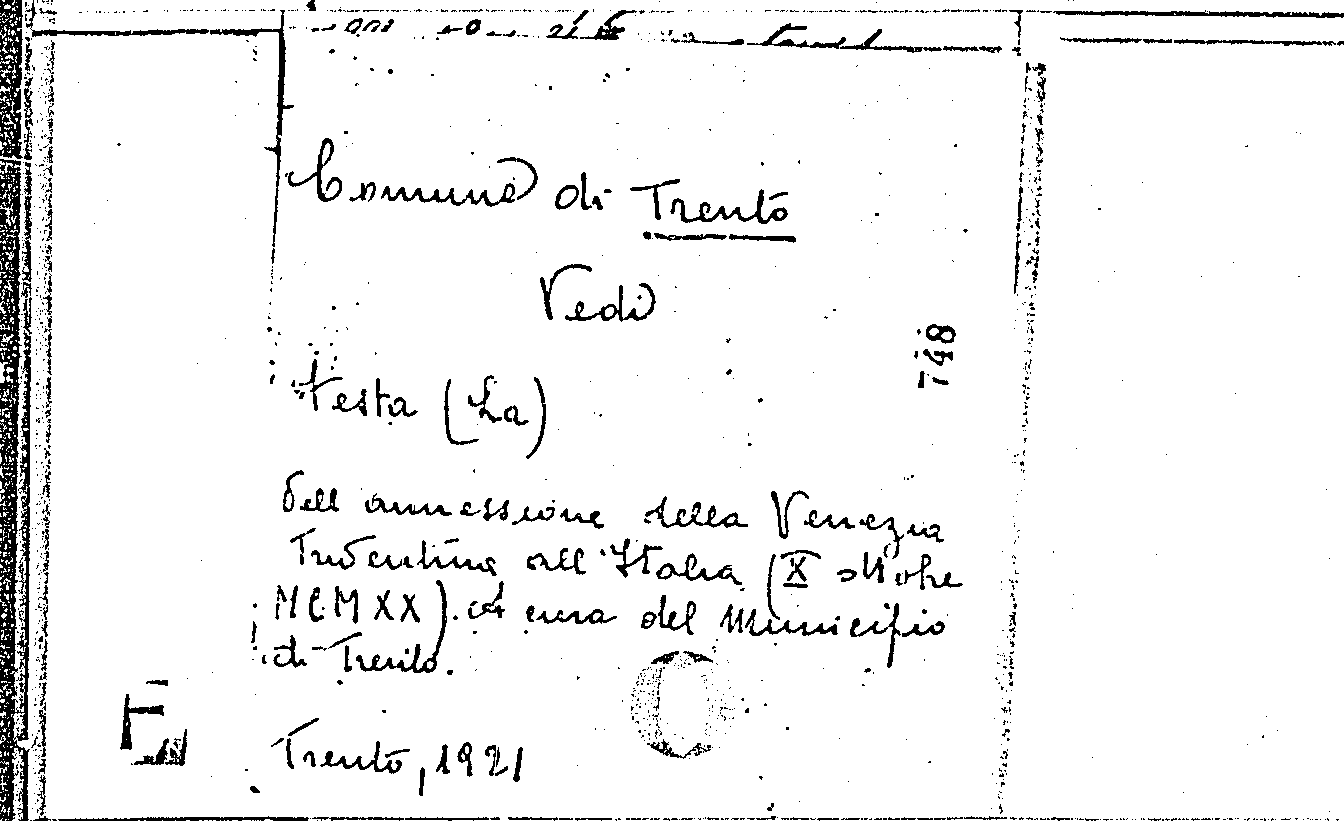 Comune di Trento
Vedi
festa (La)
dell annessione della Venezia
Tridentina all'Italia (X ottobre
MCMXX). A cura del Municipio
di Trento.
Trento, 1921
748